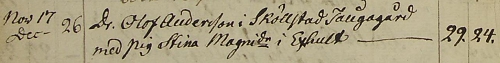 Nov 17 Dr. Olof Anderson i Skölstad Taugagård
Dec 26 med Pig Stina Magnidr i Exhult — 29. 24.